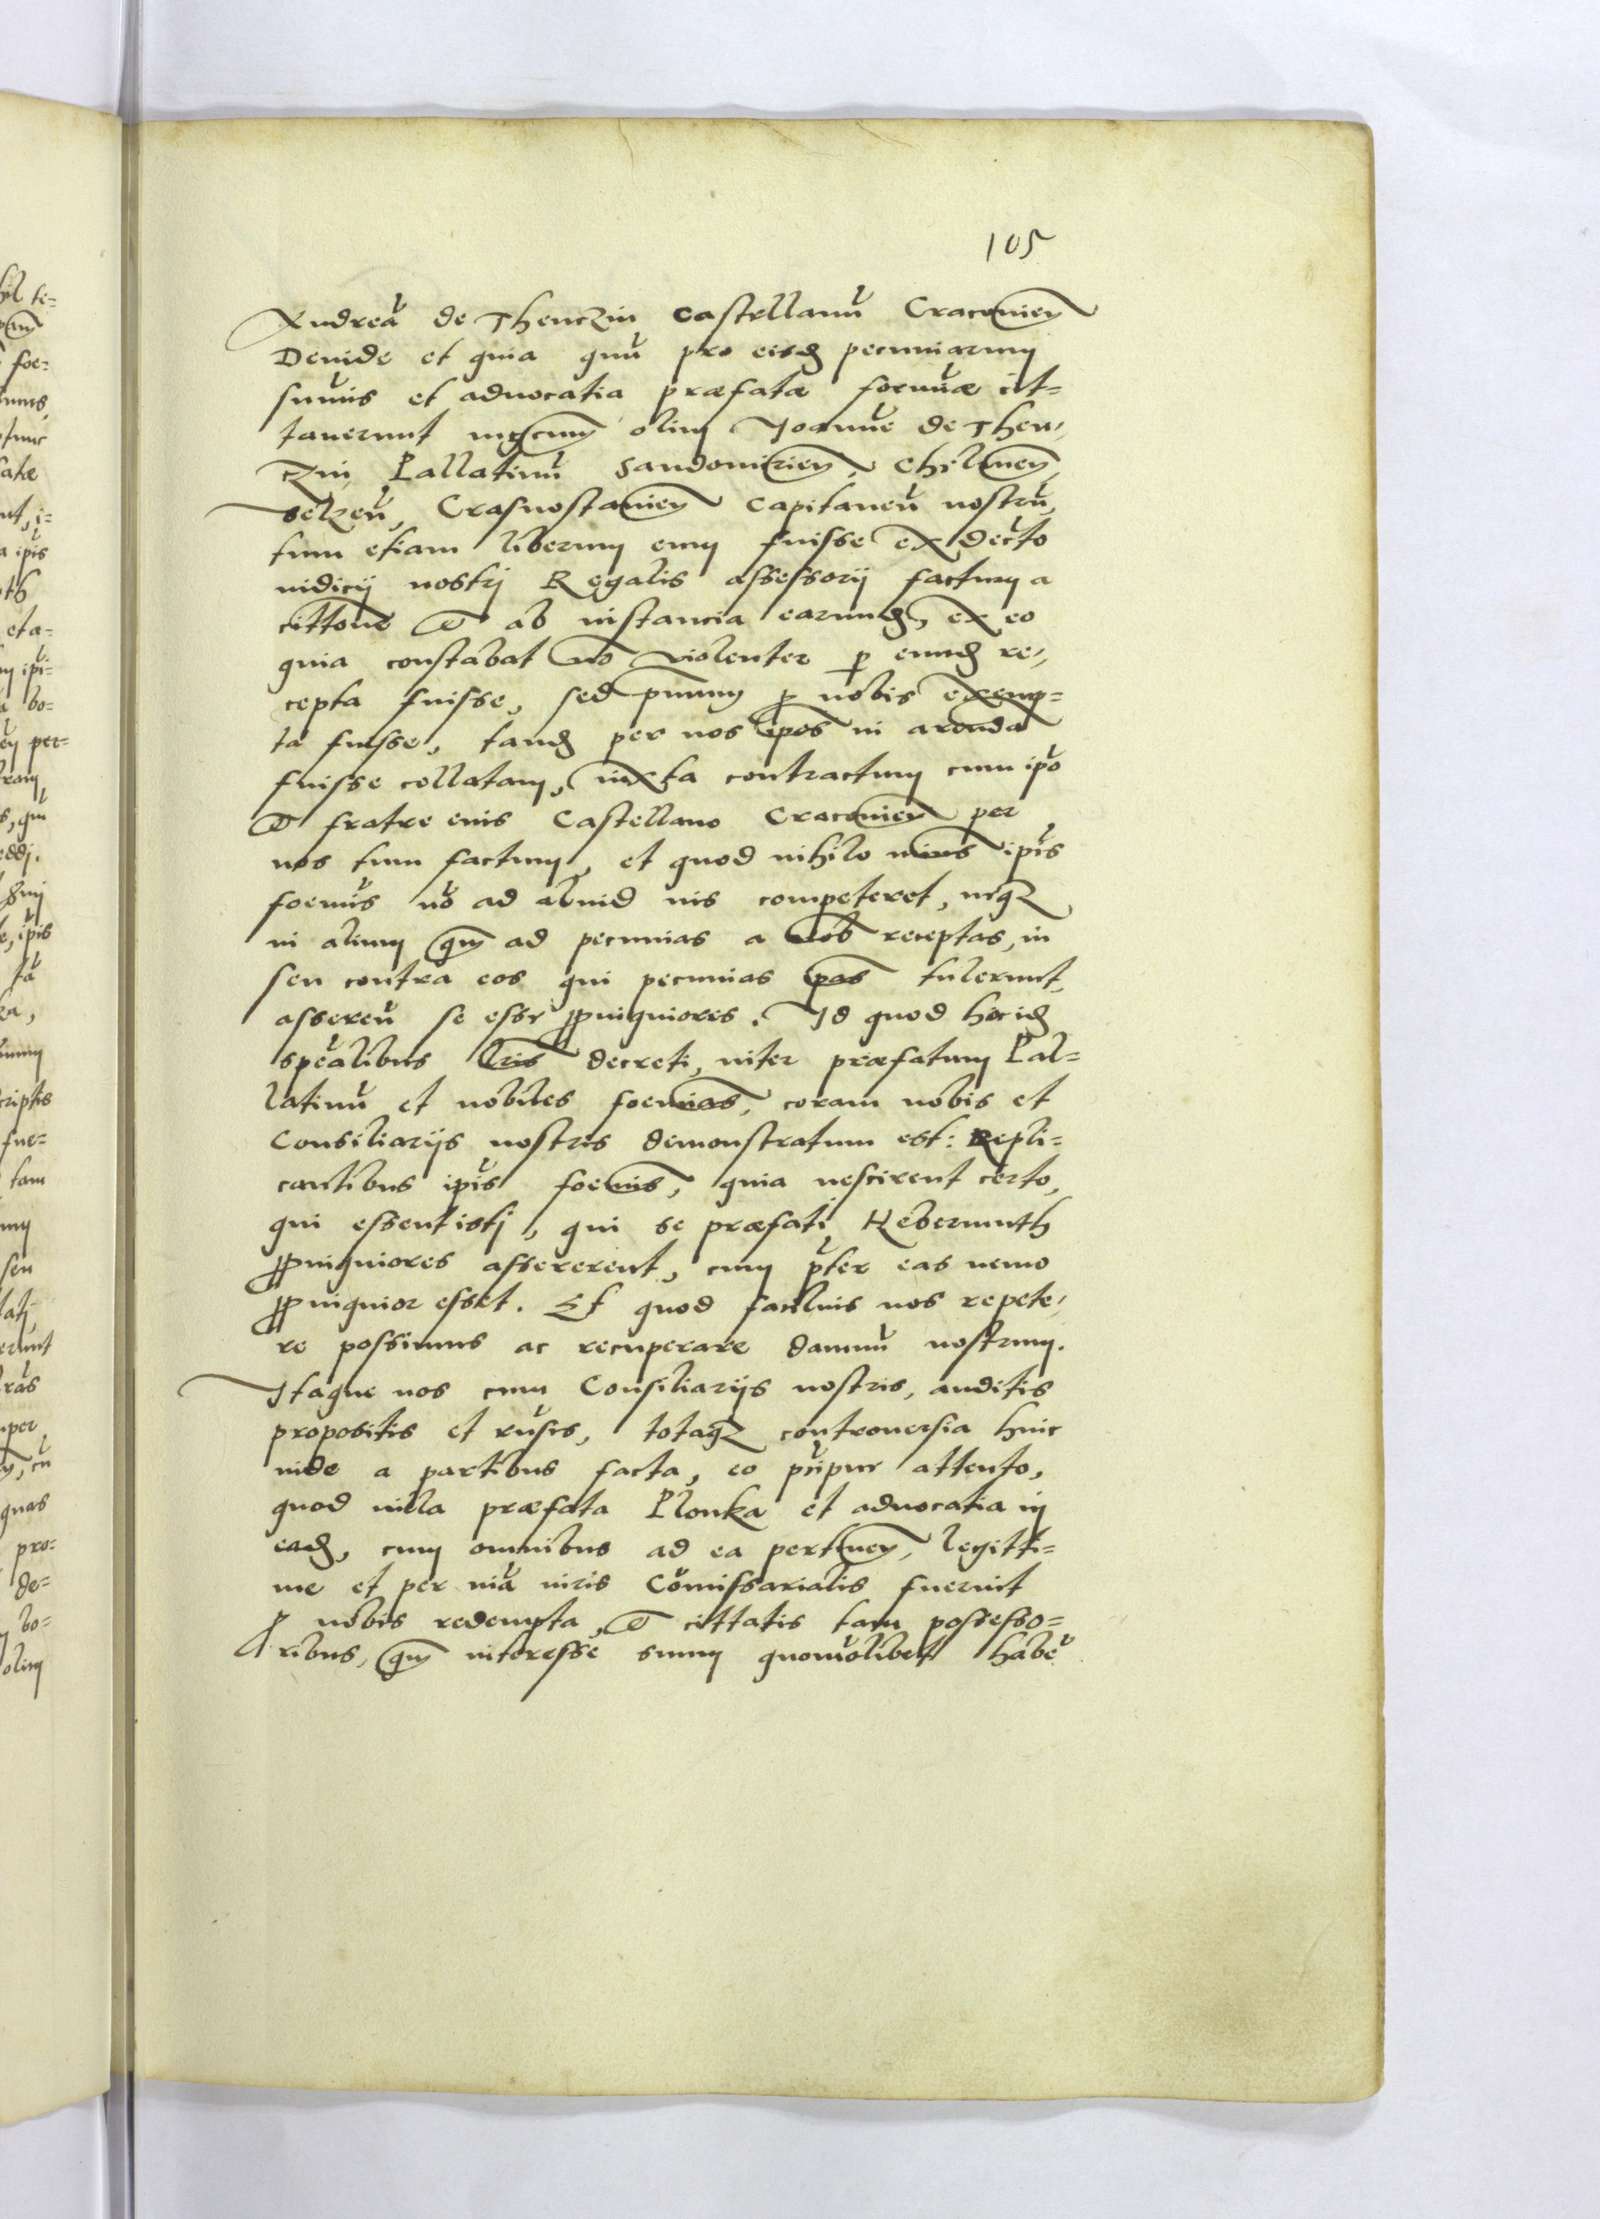 105
Andreā de Thenczin Castellanū Cracovien̄
Deinde et quia quū pro eisd pecuniarum
sumis et advocatia præfatæ foemīæ cit=
taverunt mgcum olim Joanne de Then,
czin Pallatinū Sandomirien, Chelmen,
Belzeñ, Crasnostavien Capitaneū nostrū,
tum etiam liberum eum fuisse ex decto
iudicij nostrj Regalis assessorij factum a
cittone et ab instancia earund, ex eo
quia constabat nō violenter p eund re,
cepta fuisse, sed primum p nobis exemp=
ta fuisse, tand per nos ipos in arenda
fuisse collatam, iuxta contractum cum ipō
et fratre eius Castellano Cracovien per
nos tum factum, et quod nihilo minus ipīs
foemīs nō ad aliud ius competeret, neq
in alium qm ad pecunias a nob receptas, in
seu contra eos qui pecunias ipas tulerunt,
assereñ se esse ppinquiores. Id quod hic id
spēalibus lris decreti, inter præfatum Pal=
latinū et nobiles foeminas, coram nobis et
Consiliarijs nostris demonstratum est: Repli=
cantibus ipīs foeminis, quia nescirent certo,
qui essent istj, qui se præfati Hebermuth
ppinquiores assererent, cum pter eas nemo
ppinquior esset. Et quod facilius nos repete,
re possimus ac recuperare damnū nostrum.
Itaque nos cum Consiliarijs nostris, auditis
propositis et rūsis, totaq controversia hinc
inde a partibus facta, eo pcipue attento,
quod villa præfata Plonka et advocatia in
ead, cum omnibus ad ea pertinen, legitti=
me et per viā iuris Cōmissarialis fuerint
p nobis redempta, et cittatis tam possesso=
ribus, qm interesse suum quomōlibet habeñ